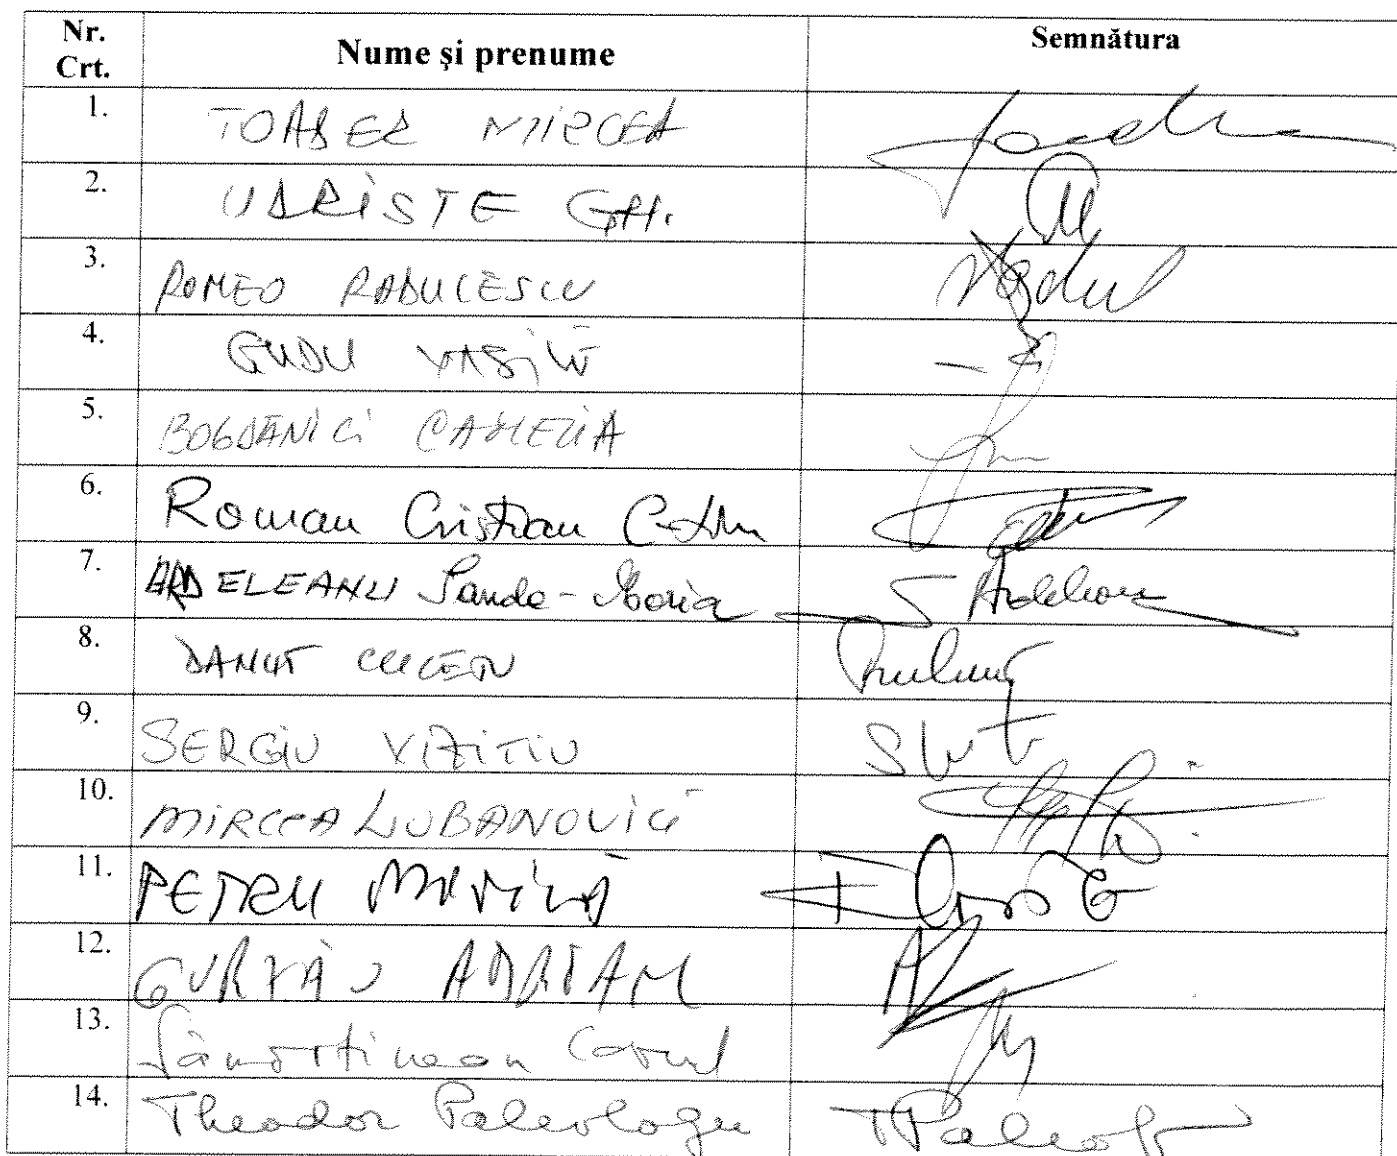 Nr. Crt. Nume și prenume Semnătura
1. TOADER MIRCEA
2. UDRISTE GH.
3. ROMEO RADUCESCU
4. GUDU VASILE
5. BOGDĂNICI CAMELIA
6. Roman Cristian C-tin
7. ARDELEANU Sanda-Maria
8. DANUT CULETU
9. SERGIU VIZITIU
10. MIRCEA LUBANOVICI
11. PETRU MOVILĂ
12. GURZĂU ADRIAN
13. Sâmărtinean Cornel
14. Theodor Paleologu TPaleologu